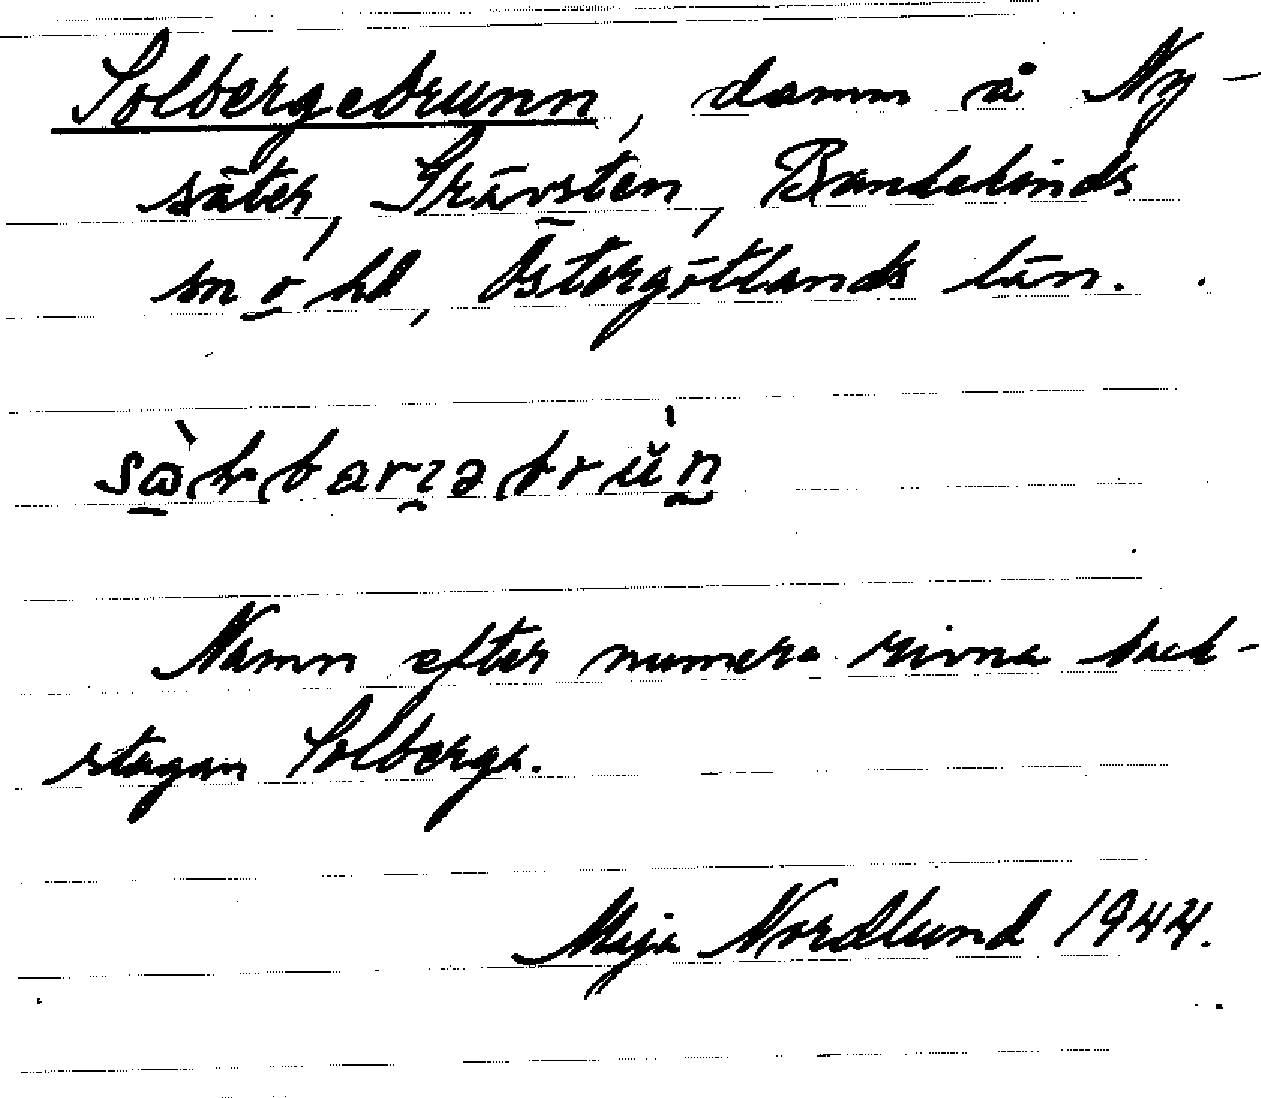 Solbergebrunn, damm å Ny-
säter, Trävsten, Bankekinds
sn o hd, Östergötlands län.
Namn efter numera rivna back-
stugan Solberga.
Maja Nordlund 1944.